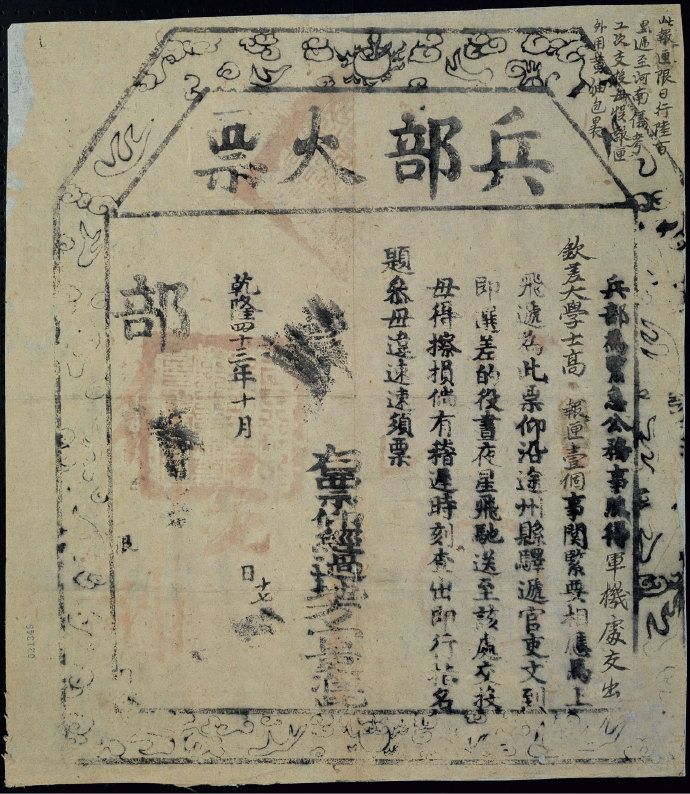 此報匣限日行陸百
里遞至河南儀考
工次交投毋悞報匣
外用黃油包裹
兵部火票
兵部為緊急公務事照得軍機處交出
欽差大學士高 報匣壹個事関緊要相應馬上
飛遞為此票仰沿途州縣驛遞官吏文到
即選差的役晝夜星飛馳送至該處交投
毋得擦損倘有稽遲時刻查出即行指名
題叅毋違速速須票
右票仰經過
乾隆四十三年十月 十七 日
部
021349